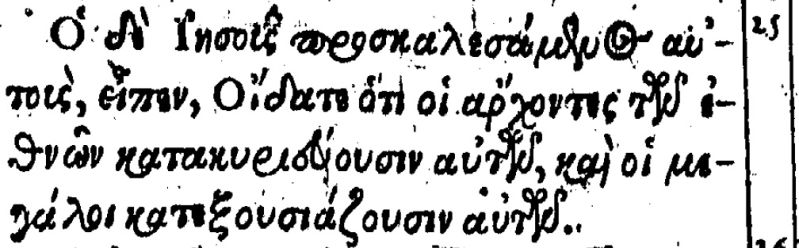 Ὁ δὲ Ἰησοῦς προσκαλεσάμενος αὐ- 25
τοὺς, εἶπεν, Οἴδατε ὅτι οἱ ἄρχοντες τῶν ἐ-
θνῶν κατακυριεύουσιν αὐτῶν, καὶ οἱ με-
γάλοι κατεξουσιάζουσιν αὐτῶν.
26